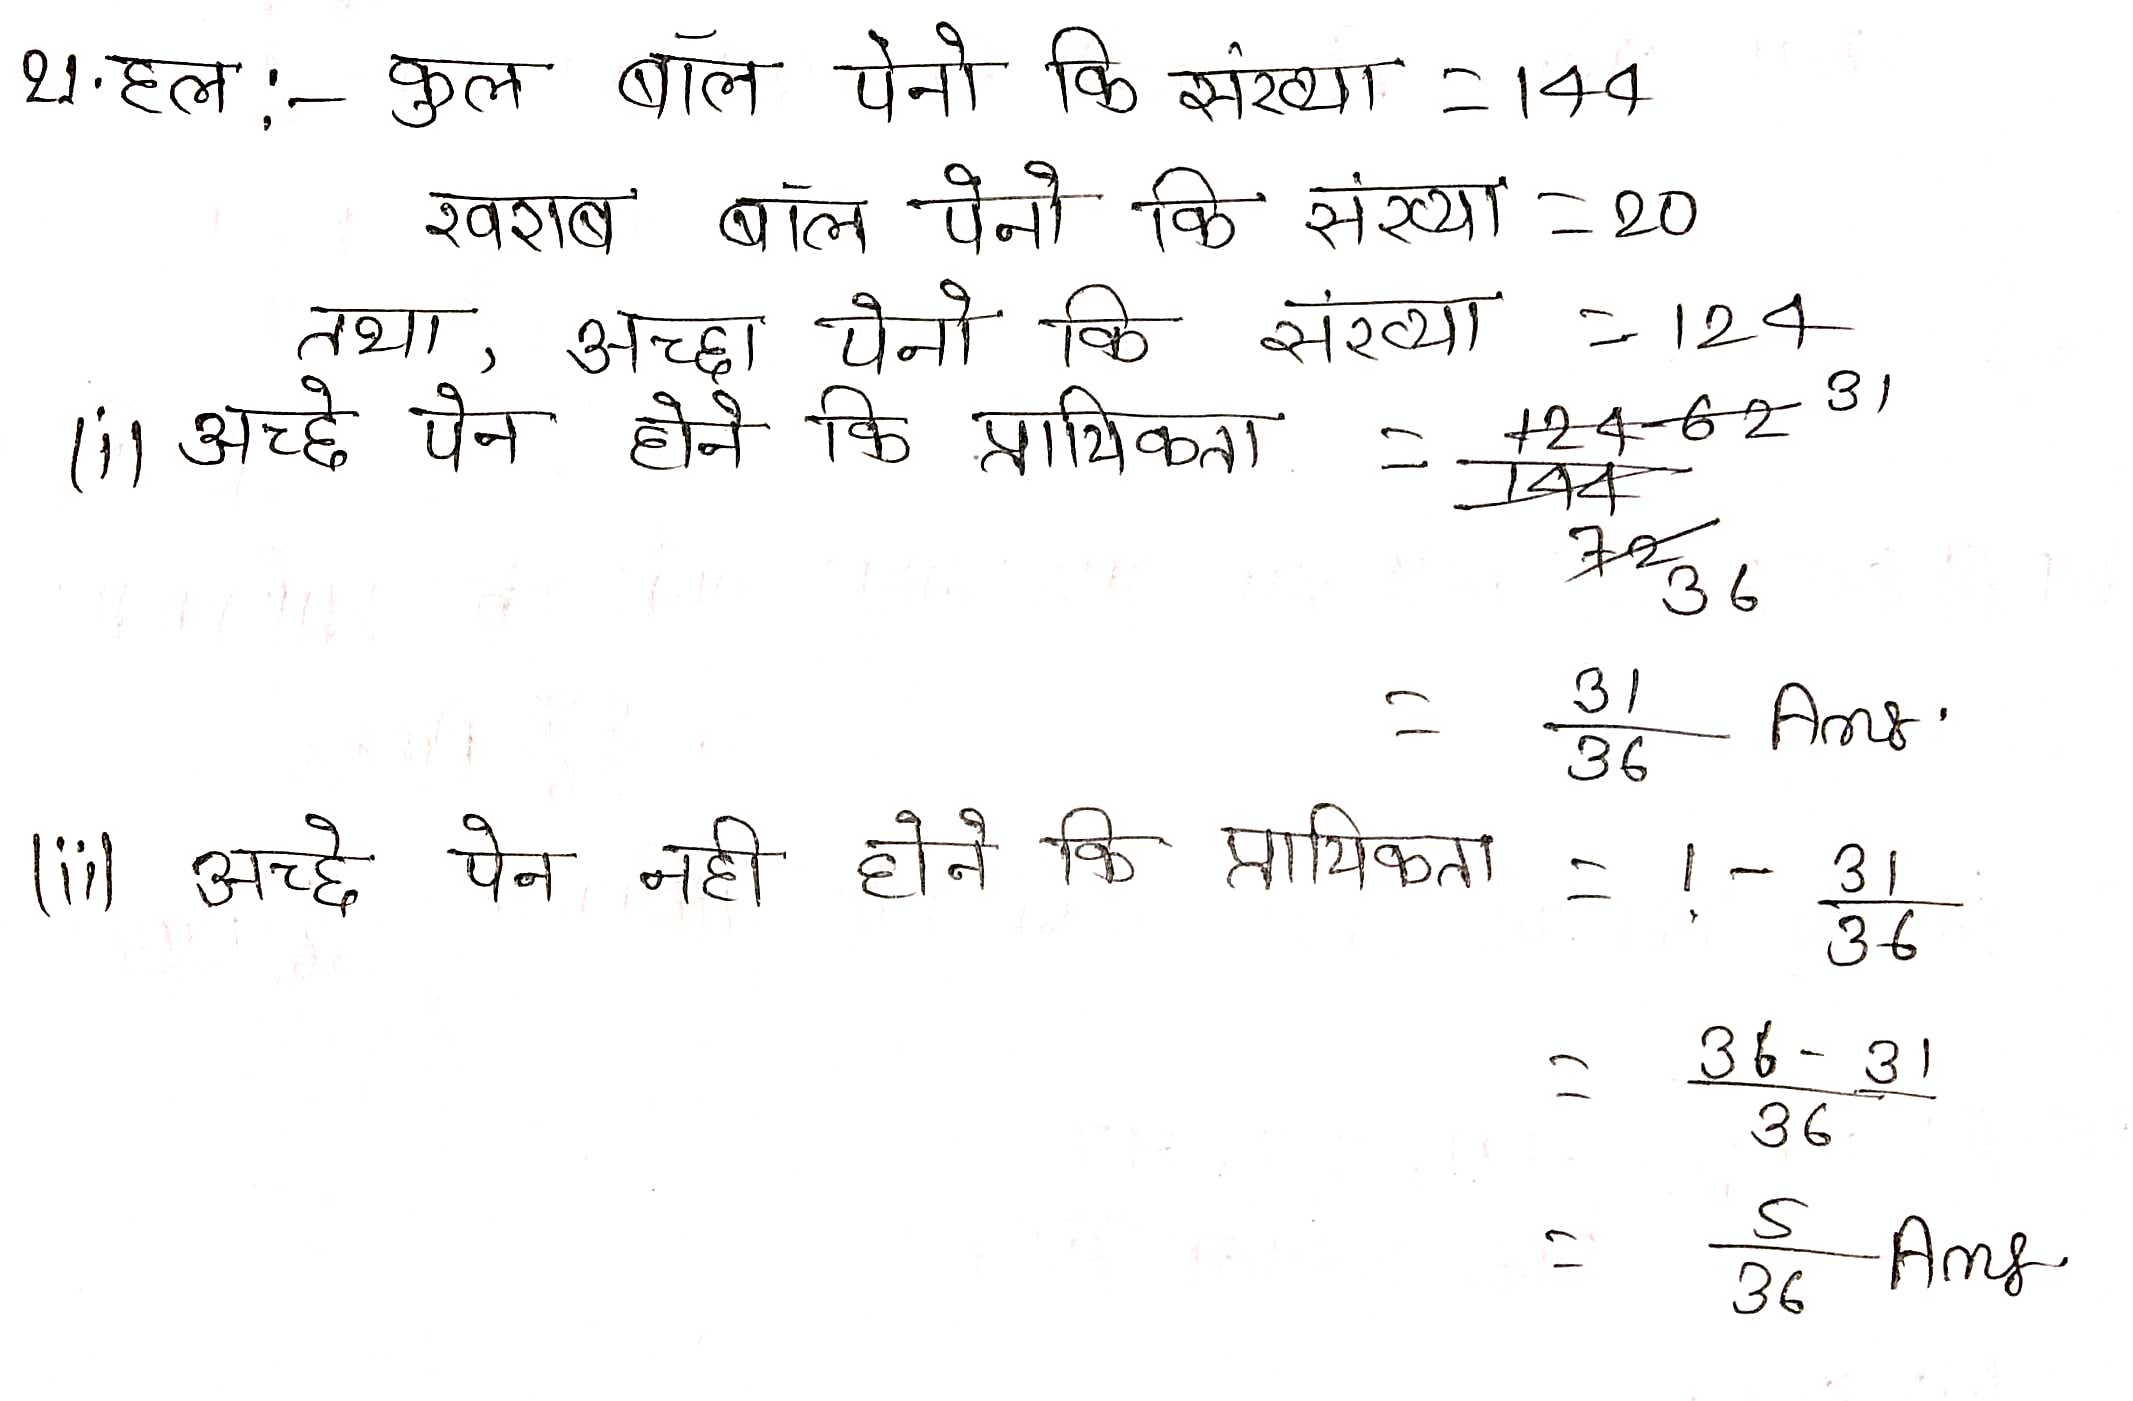 21. हल :- कुल बॉल पेनो कि संख्या = 144
खराब बॉल पेनो कि संख्या = 20
तथा, अच्छा पेनो कि संख्या = 124
(i) अच्छे पेन होने कि प्रायिकता = 124 62 31
144
72
36
= 31/36 Ans.
(ii) अच्छे पेन नही होने कि प्रायिकता = 1 - 31/36
= 36 - 31/36
= 5/36 Ans